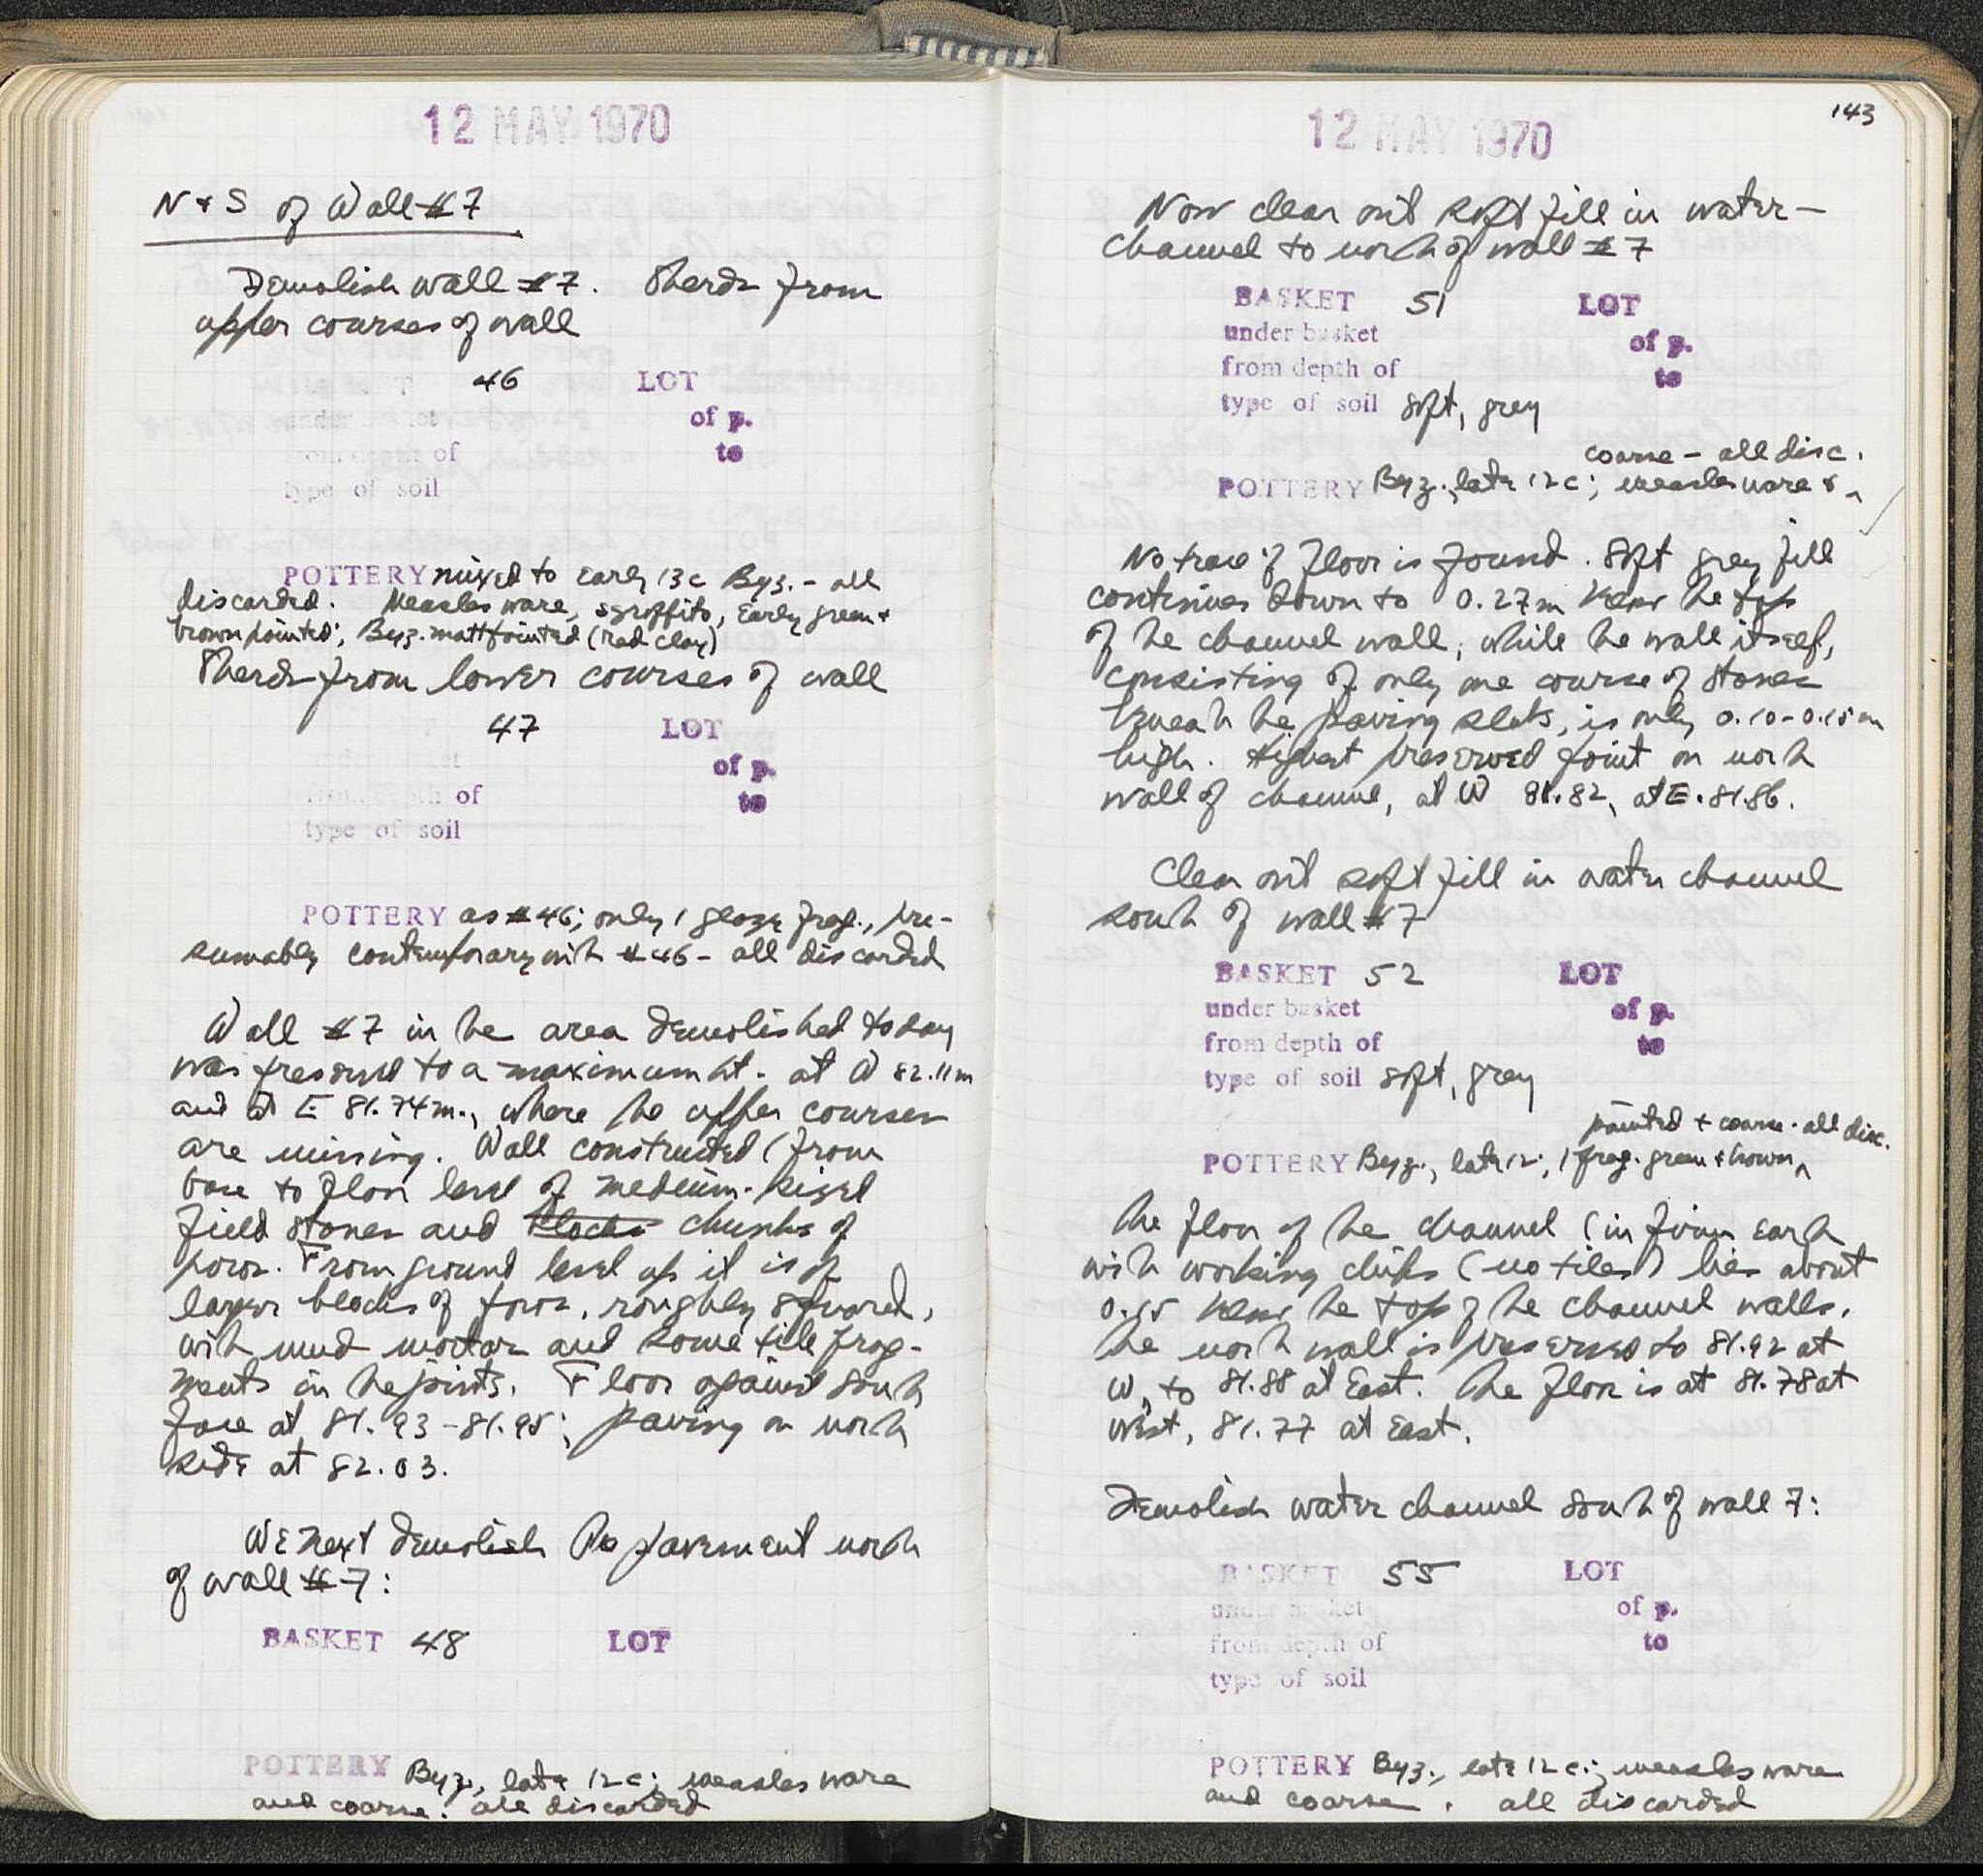 12 MAY 1970
N + S of Wall #7
Demolish wall #7. Sherds from
upper courses of wall
46 LOT
under basket of p.
from depth of to
type of soil
POTTERY mixed to early 13c Byz. - all
discarded. Measles ware, sgraffito, Early green +
brown painted; Byz. matt painted (red clay)
Sherds from lower courses of wall
47 LOT
of p.
from depth of to
type of soil
POTTERY as #46; only 1 glaze frag., pre-
sumably contemporary with #46 - all discarded
Wall #7 in the area demolished today
was preserved to a maximum ht. at W 82.11m
and at E 81.74m., where the upper courses
are missing. Wall constructed (from
base to floor level of medium-sized
field stones and blocks chunks of
poros. From ground level up it is of
larger blocks of poros, roughly squared,
with mud mortar and some tile frag-
ments in the joints. Floor against south
face at 81.93-81.95; paving on north
side at 82.03.
We next demolish the pavement north
of wall #7:
BASKET 48 LOT
POTTERY Byz., late 12c; measles ware
and coarse. all discarded
143
12 MAY 1970
Now clear out soft fill in water-
channel to north of wall #7
BASKET 51 LOT
under basket of p.
from depth of to
type of soil soft, grey
coarse - all disc.
POTTERY Byz., late 12c; measles ware +
No trace of floor is found. Soft grey fill
continues down to 0.27m below the top
of the channel wall, while the wall itself,
consisting of only one course of stones
beneath the paving slabs, is only 0.10-0.15m
high. Highest preserved point on north
wall of channel, at W 81.82, at E. 81.86.
Clear out soft fill in water channel
south of wall #7
BASKET 52 LOT
under basket of p.
from depth of to
type of soil soft, grey
painted + coarse. all disc.
POTTERY Byz., late 12; 1 frag. green + brown
The floor of the channel (in firm earth
with working chips (no tiles) lies about
0.15 below the top of the channel walls.
The north wall is preserved to 81.92 at
W, to 81.88 at East. The floor is at 81.78 at
West, 81.77 at East.
Demolish water channel south of wall 7:
BASKET 55 LOT
under basket of p.
from depth of to
type of soil
POTTERY Byz., late 12c.; measles ware
and coarse. all discarded